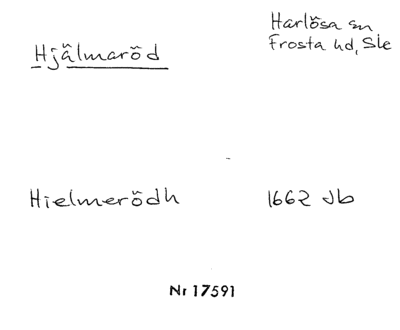 Hjälmaröd
Harlösa sn
Frosta hd, Ske
Hielmerödh
1662 Jb
Nr 17591